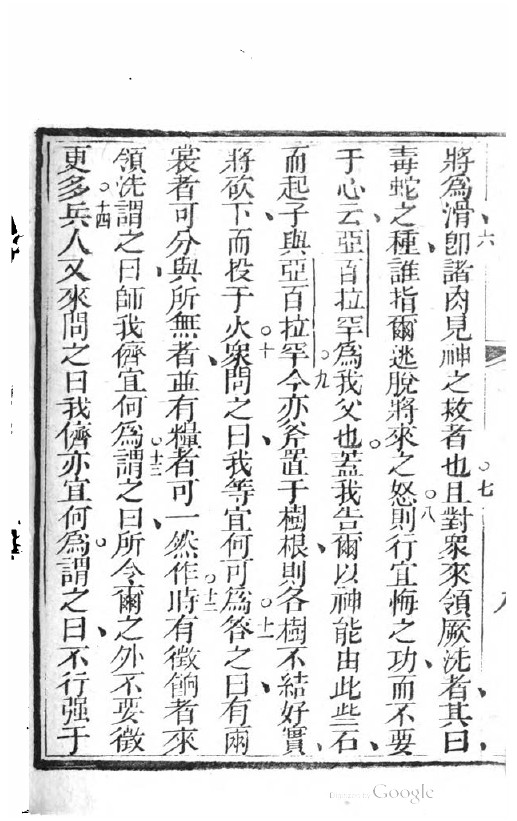 將為滑卽諸肉見神之救者也且對衆來領厥洗者其曰
六
七
毒蛇之種誰指爾逃脫將來之怒則行宜悔之功而不要
八
于心云亞百拉罕為我父也蓋我告爾以神能由此些石
九
而起子與亞百拉罕今亦斧置于樹根則各樹不結好實
將砍下而投于火衆問之曰我等宜何可為答之曰有兩
十
十一
裳者可分與所無者並有糧者可一然作時有徵餉者來
十二
領洗謂之曰師我儕宜何為謂之曰所令爾之外不要徵
十三
更多兵人又來問之曰我儕亦宜何為謂之曰不行强于
十四
Digitized by Google